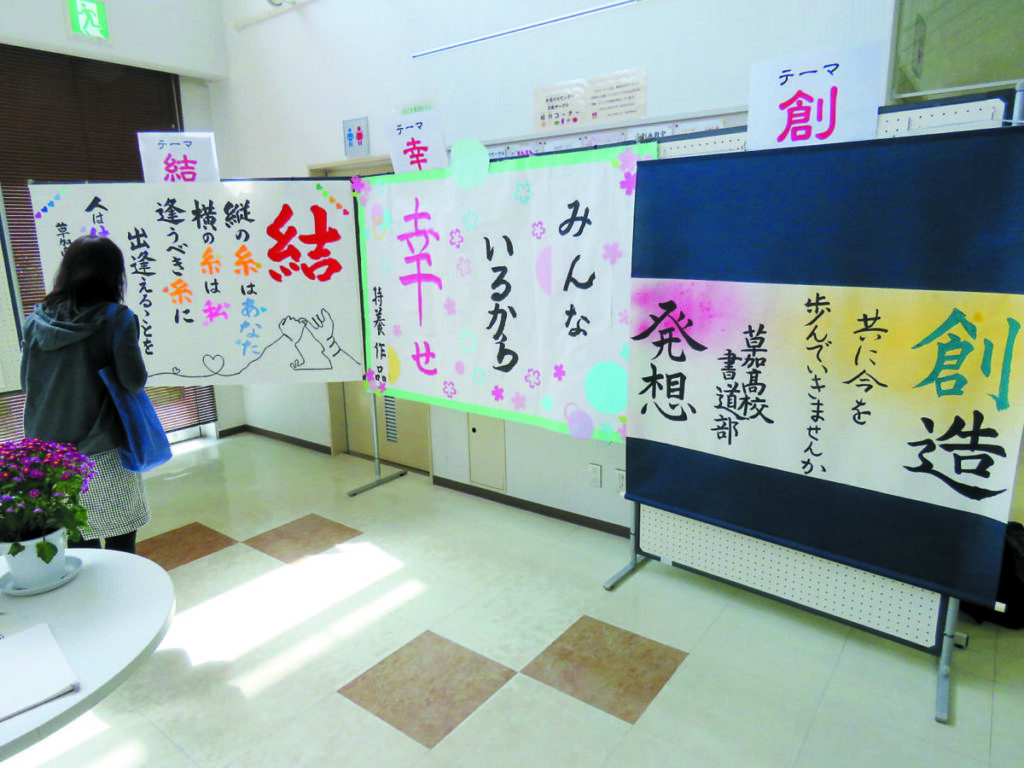 テーマ
結
結
縦の糸はあなた
横の糸は私
逢うべき糸に
出逢えることを
人は
テーマ
幸
みんな
いるから
幸せ
特養作品
テーマ
創
創造
共に今を
歩んでいきませんか
草加高校
書道部
発想